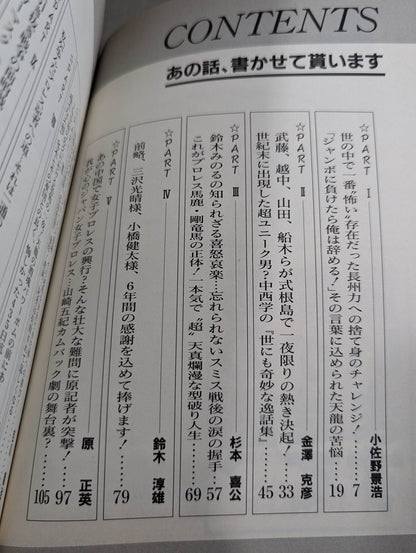 CONTENTS
あの話、書かせて貰います
☆PART Ⅰ
小佐野景浩
世の中で一番“怖い”存在だった長州力への捨て身のチャレンジ!……7
「ジャンボに負けたら俺は辞める!」その言葉に込められた天龍の苦悩……19
☆PART Ⅱ
金澤 克彦
武藤、越中、山田、船木らが式根島で一夜限りの熱き決起!……33
世紀末に出現した超ユニーク男?中西学の『世にも奇妙な逸話集』……45
☆PART Ⅲ
杉本 喜公
鈴木みのるの知られざる喜怒哀楽…忘れられないスミス戦後の涙の握手…57
これがプロレス馬鹿・剛竜馬の正体!本気で“超”天真爛漫な型破り人生……69
☆PART Ⅳ
鈴木 淳雄
前略、三沢光晴様、小橋健太様、6年間の感謝を込めて捧げます!……79
☆PART Ⅴ
原 正英
あの中国で女子プロレスの興行?そんな壮大な難問に原記者が突撃!……97
我が心のジャパン女子プロレス…山崎五紀カムバック劇の舞台裏?……105